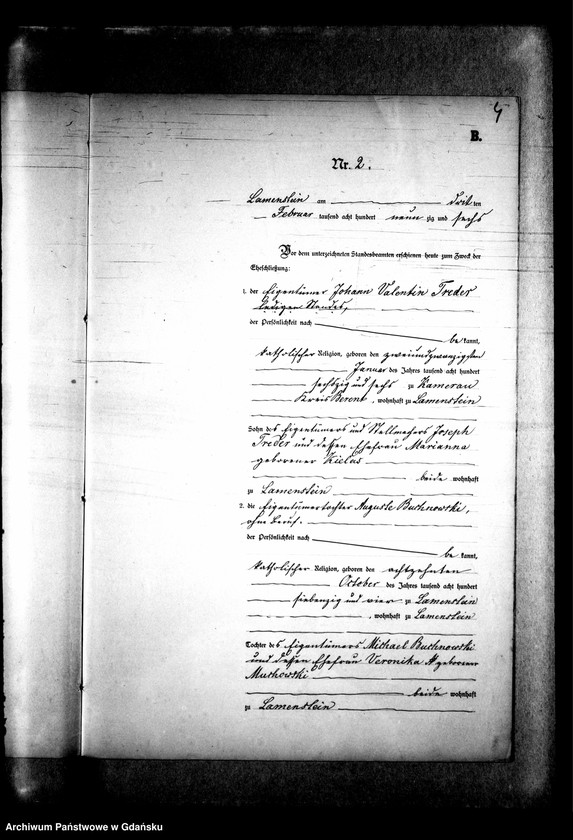 4
B.
Nr. 2.
Lamenstein am dritten
Februar tausend acht hundert neunzig und sechs
Vor dem unterzeichneten Standesbeamten erschienen heute zum Zweck der
Eheschließung:
1. der Eigentümer Johann Valentin Treder
ledigen Standes,
der Persönlichkeit nach
bekannt,
katholischer Religion, geboren den zweiundzwanzigsten
Januar des Jahres tausend acht hundert
sechszig und sechs zu Kamerau
Kreis Berent, wohnhaft zu Lamenstein
Sohn des Eigentümers und Stellmachers Joseph
Treder und dessen Ehefrau Marianna
geborener Kielas
beide wohnhaft
zu Lamenstein
2. die Eigentümertochter Auguste Buchnowski,
ohne Beruf.
der Persönlichkeit nach
bekannt,
katholischer Religion, geboren den achtzehnten
October des Jahres tausend acht hundert
siebenzig und vier zu Lamenstein
, wohnhaft zu Lamenstein
Tochter des Eigentümers Michael Buchnowski
und dessen Ehefrau Veronika geborener
Muchowski
beide wohnhaft
zu Lamenstein
Archiwum Państwowe w Gdańsku